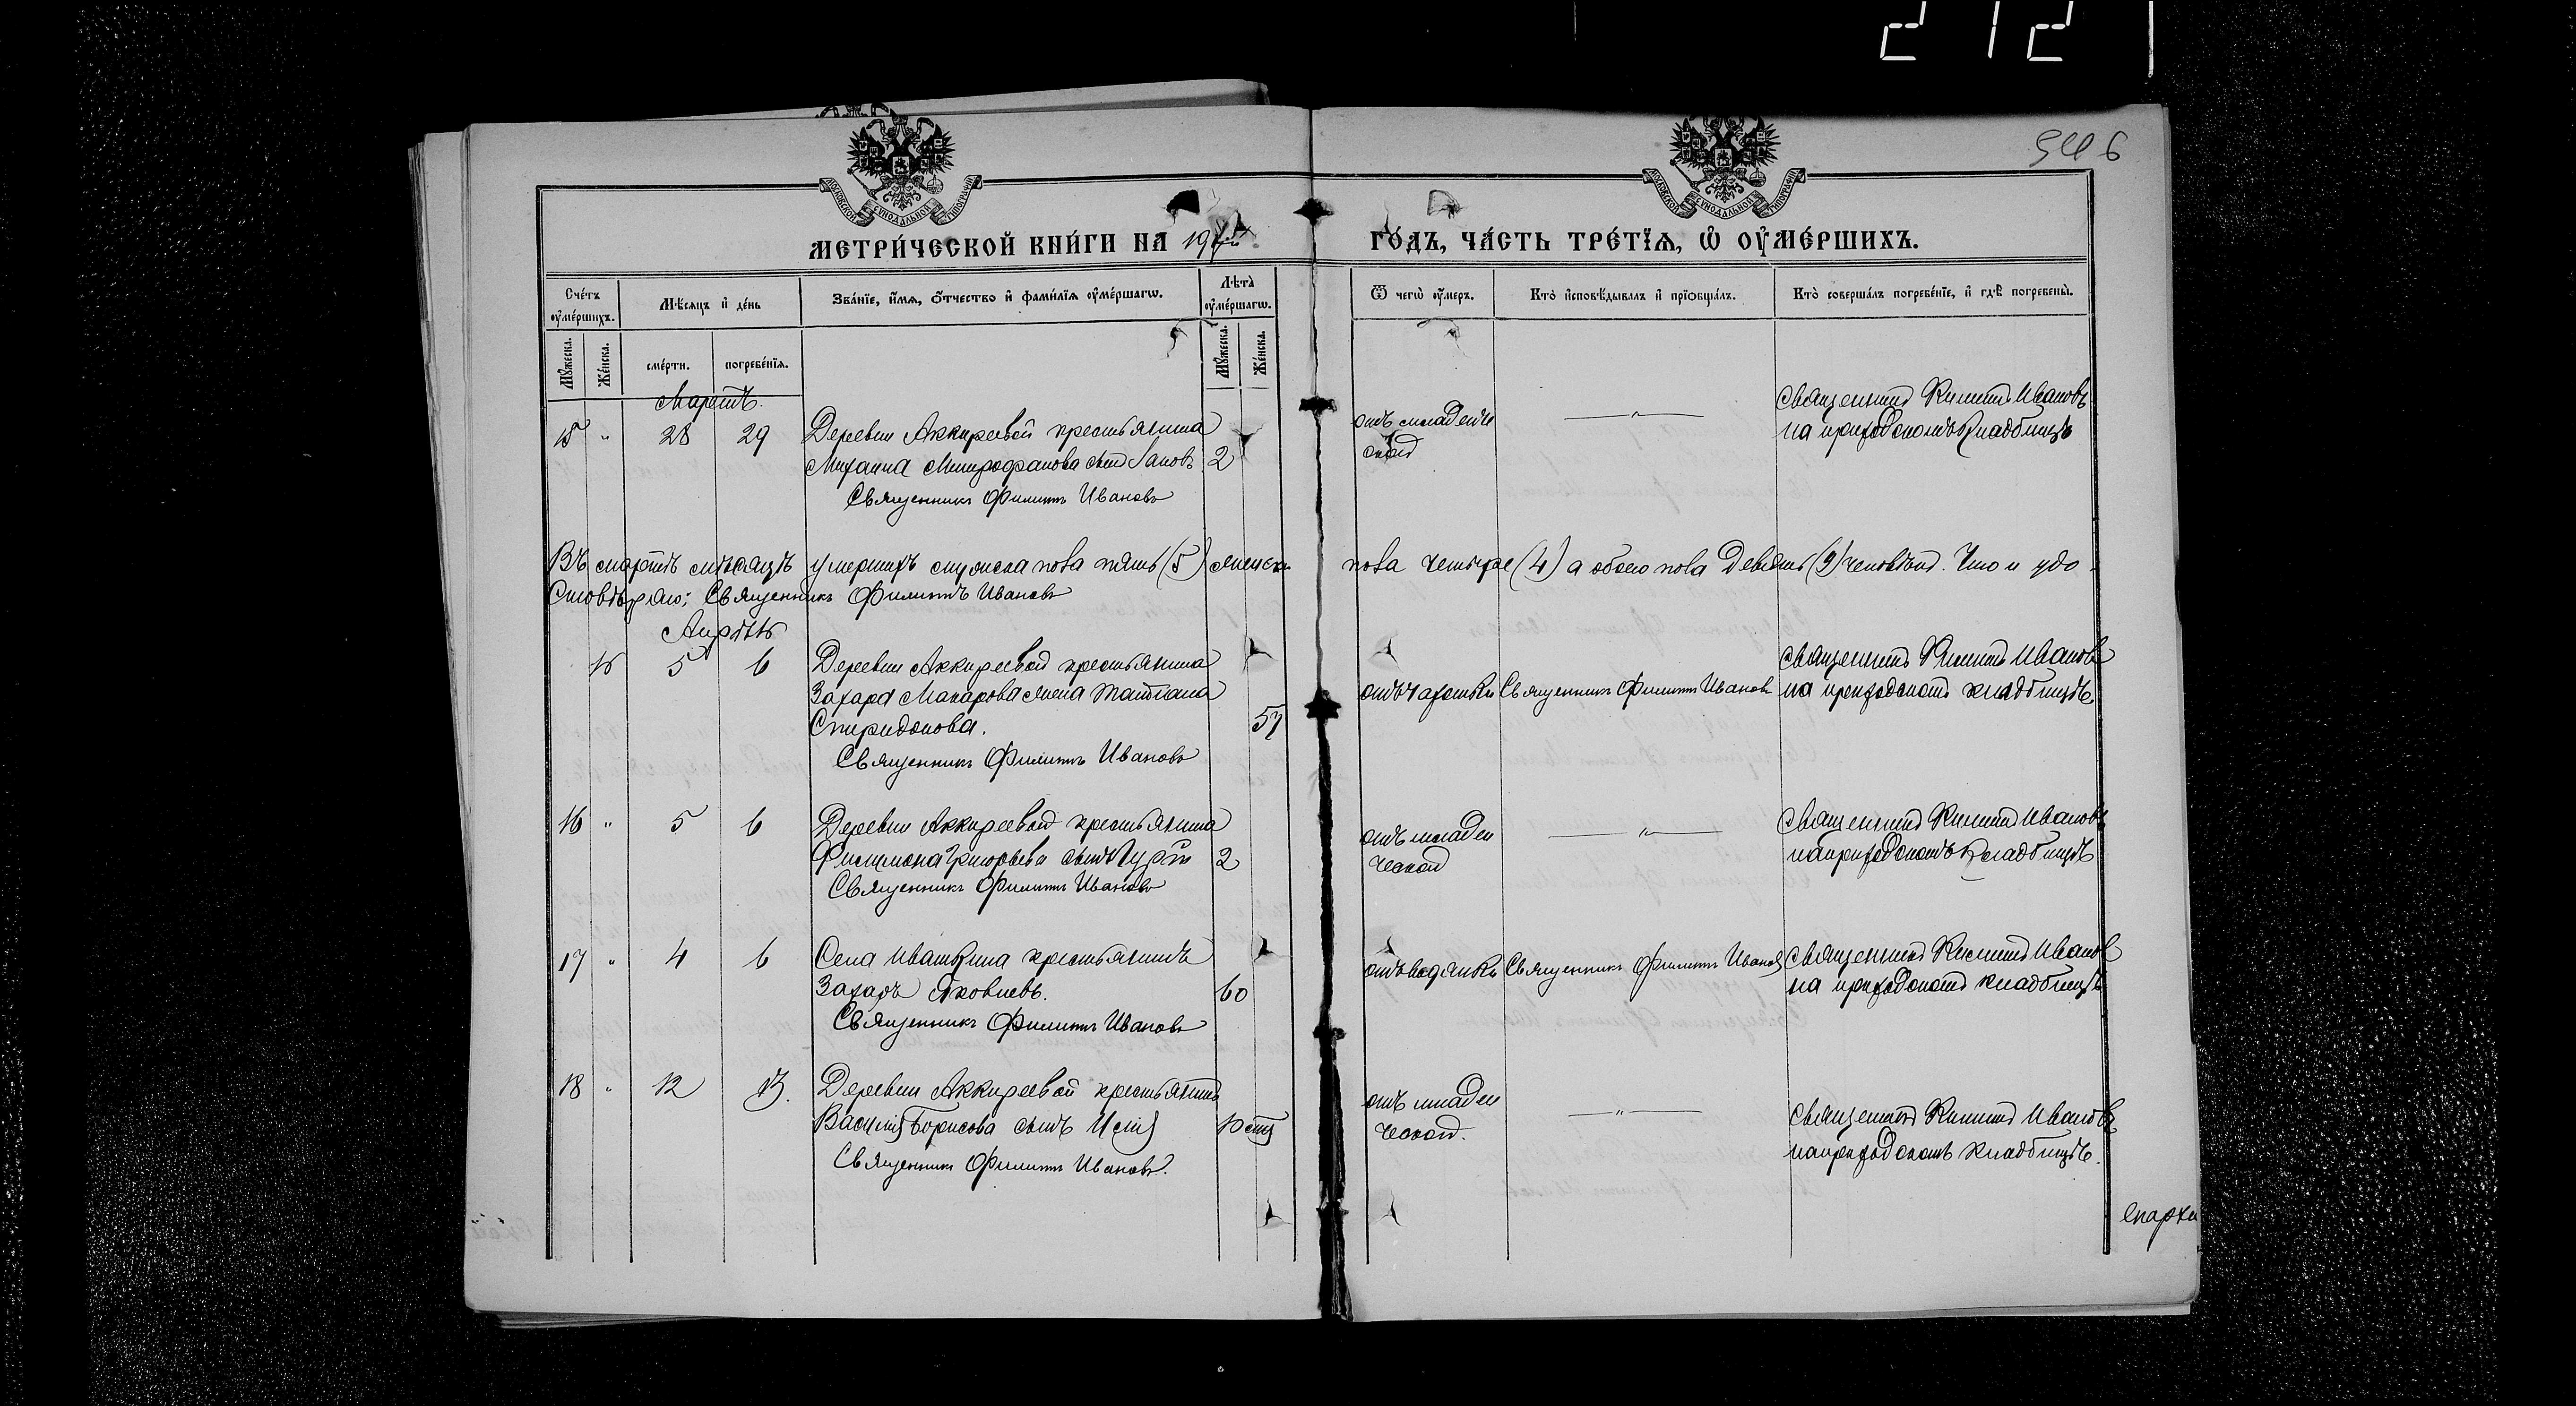 2 1 2
МОСКОВСКОЙ СѴНОДАЛЬНОЙ ТИПОГРАФІИ
МОСКОВСКОЙ СѴНОДАЛЬНОЙ ТИПОГРАФІИ
МЕТРИ́ЧЕСКОЙ КНИ́ГИ НА 19
ГО́ДЪ, ЧА́СТЬ ТРЕ́ТЇѦ, Ѡ҆ ОУ҆МЕ́РШИХЪ.
Сче́тъ оу҆ме́ршихъ.
Мѣ́сяцъ и҆ де́нь
Зва́нїе, и҆́мѧ, ѻ҆́тчество и҆ фами́лїѧ оу҆ме́ршагѡ.
Лѣта̀ оу҆ме́ршагѡ.
Ѿ чегѡ̀ оу҆́меръ.
Кто̀ и҆сповѣ́дывалъ и҆ прїѻбща́лъ.
Кто̀ соверша́лъ погребе́нїе, и҆ гдѣ̀ погребены̀.
Мꙋ́жеска.
Же́нска.
сме́рти.
погребе́нїѧ.
Мꙋ́жеска.
Же́нска.
Мартъ.
15 " 28 29 Деревни Аккиреевой крестьянина
Михаила Митрофанова сынъ 2
Священникъ Филиппъ Ивановъ
отъ младенче
ской
—"—
священникъ Филиппъ Ивановъ
на приходскомъ кладбищѣ
Въ мартѣ мѣсяцѣ умершихъ мужска пола пять (5) женска пола четыре (4) а обоего пола девять (9) человѣкъ. Что и удо
стовѣряю: Священникъ Филиппъ Ивановъ
Апрѣль
16 5 6 Деревни Аккиреевой крестьянина
Захара Макарова жена Татіана
Спиридонова. 57
Священникъ Филиппъ Ивановъ
отъ чахотки Священникъ Филиппъ Ивановъ
священникъ Филиппъ Ивановъ
на приходскомъ кладбищѣ
16 " 5 6 Деревни Аккиреевой крестьянина
Филимона Григорьева сынъ 2
Священникъ Филиппъ Ивановъ
отъ младен
ческой
—"—
священникъ Филиппъ Ивановъ
на приходскомъ кладбищѣ
17 " 4 6 Села Ивашкина крестьянинъ
Захаръ Яковлевъ. 60
Священникъ Филиппъ Ивановъ
отъ водянки Священникъ Филиппъ Ивановъ
священникъ Филиппъ Ивановъ
на приходскомъ кладбищѣ
18 " 12 13. Деревни Аккиреевой крестьянина
Василія Борисова сынъ
Священникъ Филиппъ Ивановъ.
отъ младен
ческой.
—"—
священникъ Филиппъ Ивановъ
на приходскомъ кладбищѣ.
епархи